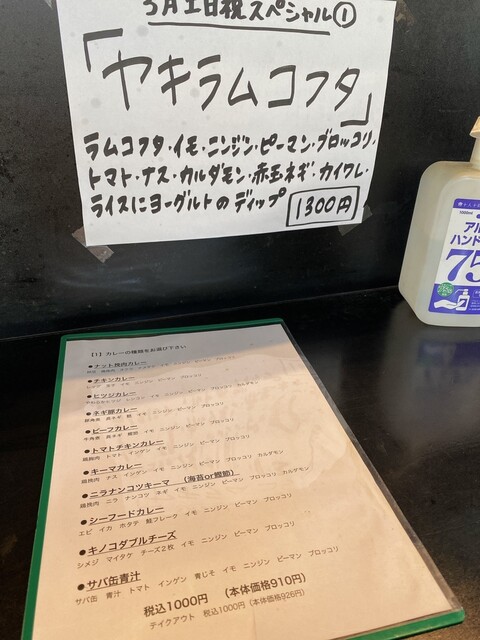 3月土日祝スペシャル①
「ヤキラムコフタ」
ラムコフタ・イモ・ニンジン・ピーマン・ブロッコリ・
トマト・ナス・カルダモン・赤玉ネギ・カイワレ・
ライスにヨーグルトのディップ 1300円
アル
ハンド
75
【1】カレーの種類をお選び下さい
●ナット挽肉カレー
●チキンカレー
●ヒツジカレー
●ネギ豚カレー
●ビーフカレー
●トマトチキンカレー
鶏挽肉 トマト インゲン イモ ニンジン ピーマン ブロッコリ
●キーマカレー
鶏挽肉 ナス インゲン イモ ニンジン ピーマン ブロッコリ カルダモン
●ニラナンコツキーマ (海苔or鰹節)
鶏挽肉 ニラ ナンコツ ネギ イモ ニンジン ピーマン ブロッコリ カルダモン
●シーフードカレー
エビ イカ ホタテ 鮭フレーク イモ ニンジン ピーマン ブロッコリ
●キノコダブルチーズ
シメジ マイタケ チーズ2枚 イモ ニンジン ピーマン ブロッコリ
●サバ缶青汁
サバ缶 青汁 トマト インゲン 青じそ イモ ニンジン ピーマン ブロッコリ
税込1000円 (本体価格910円)
テイクアウト 税込1000円(本体価格926円)